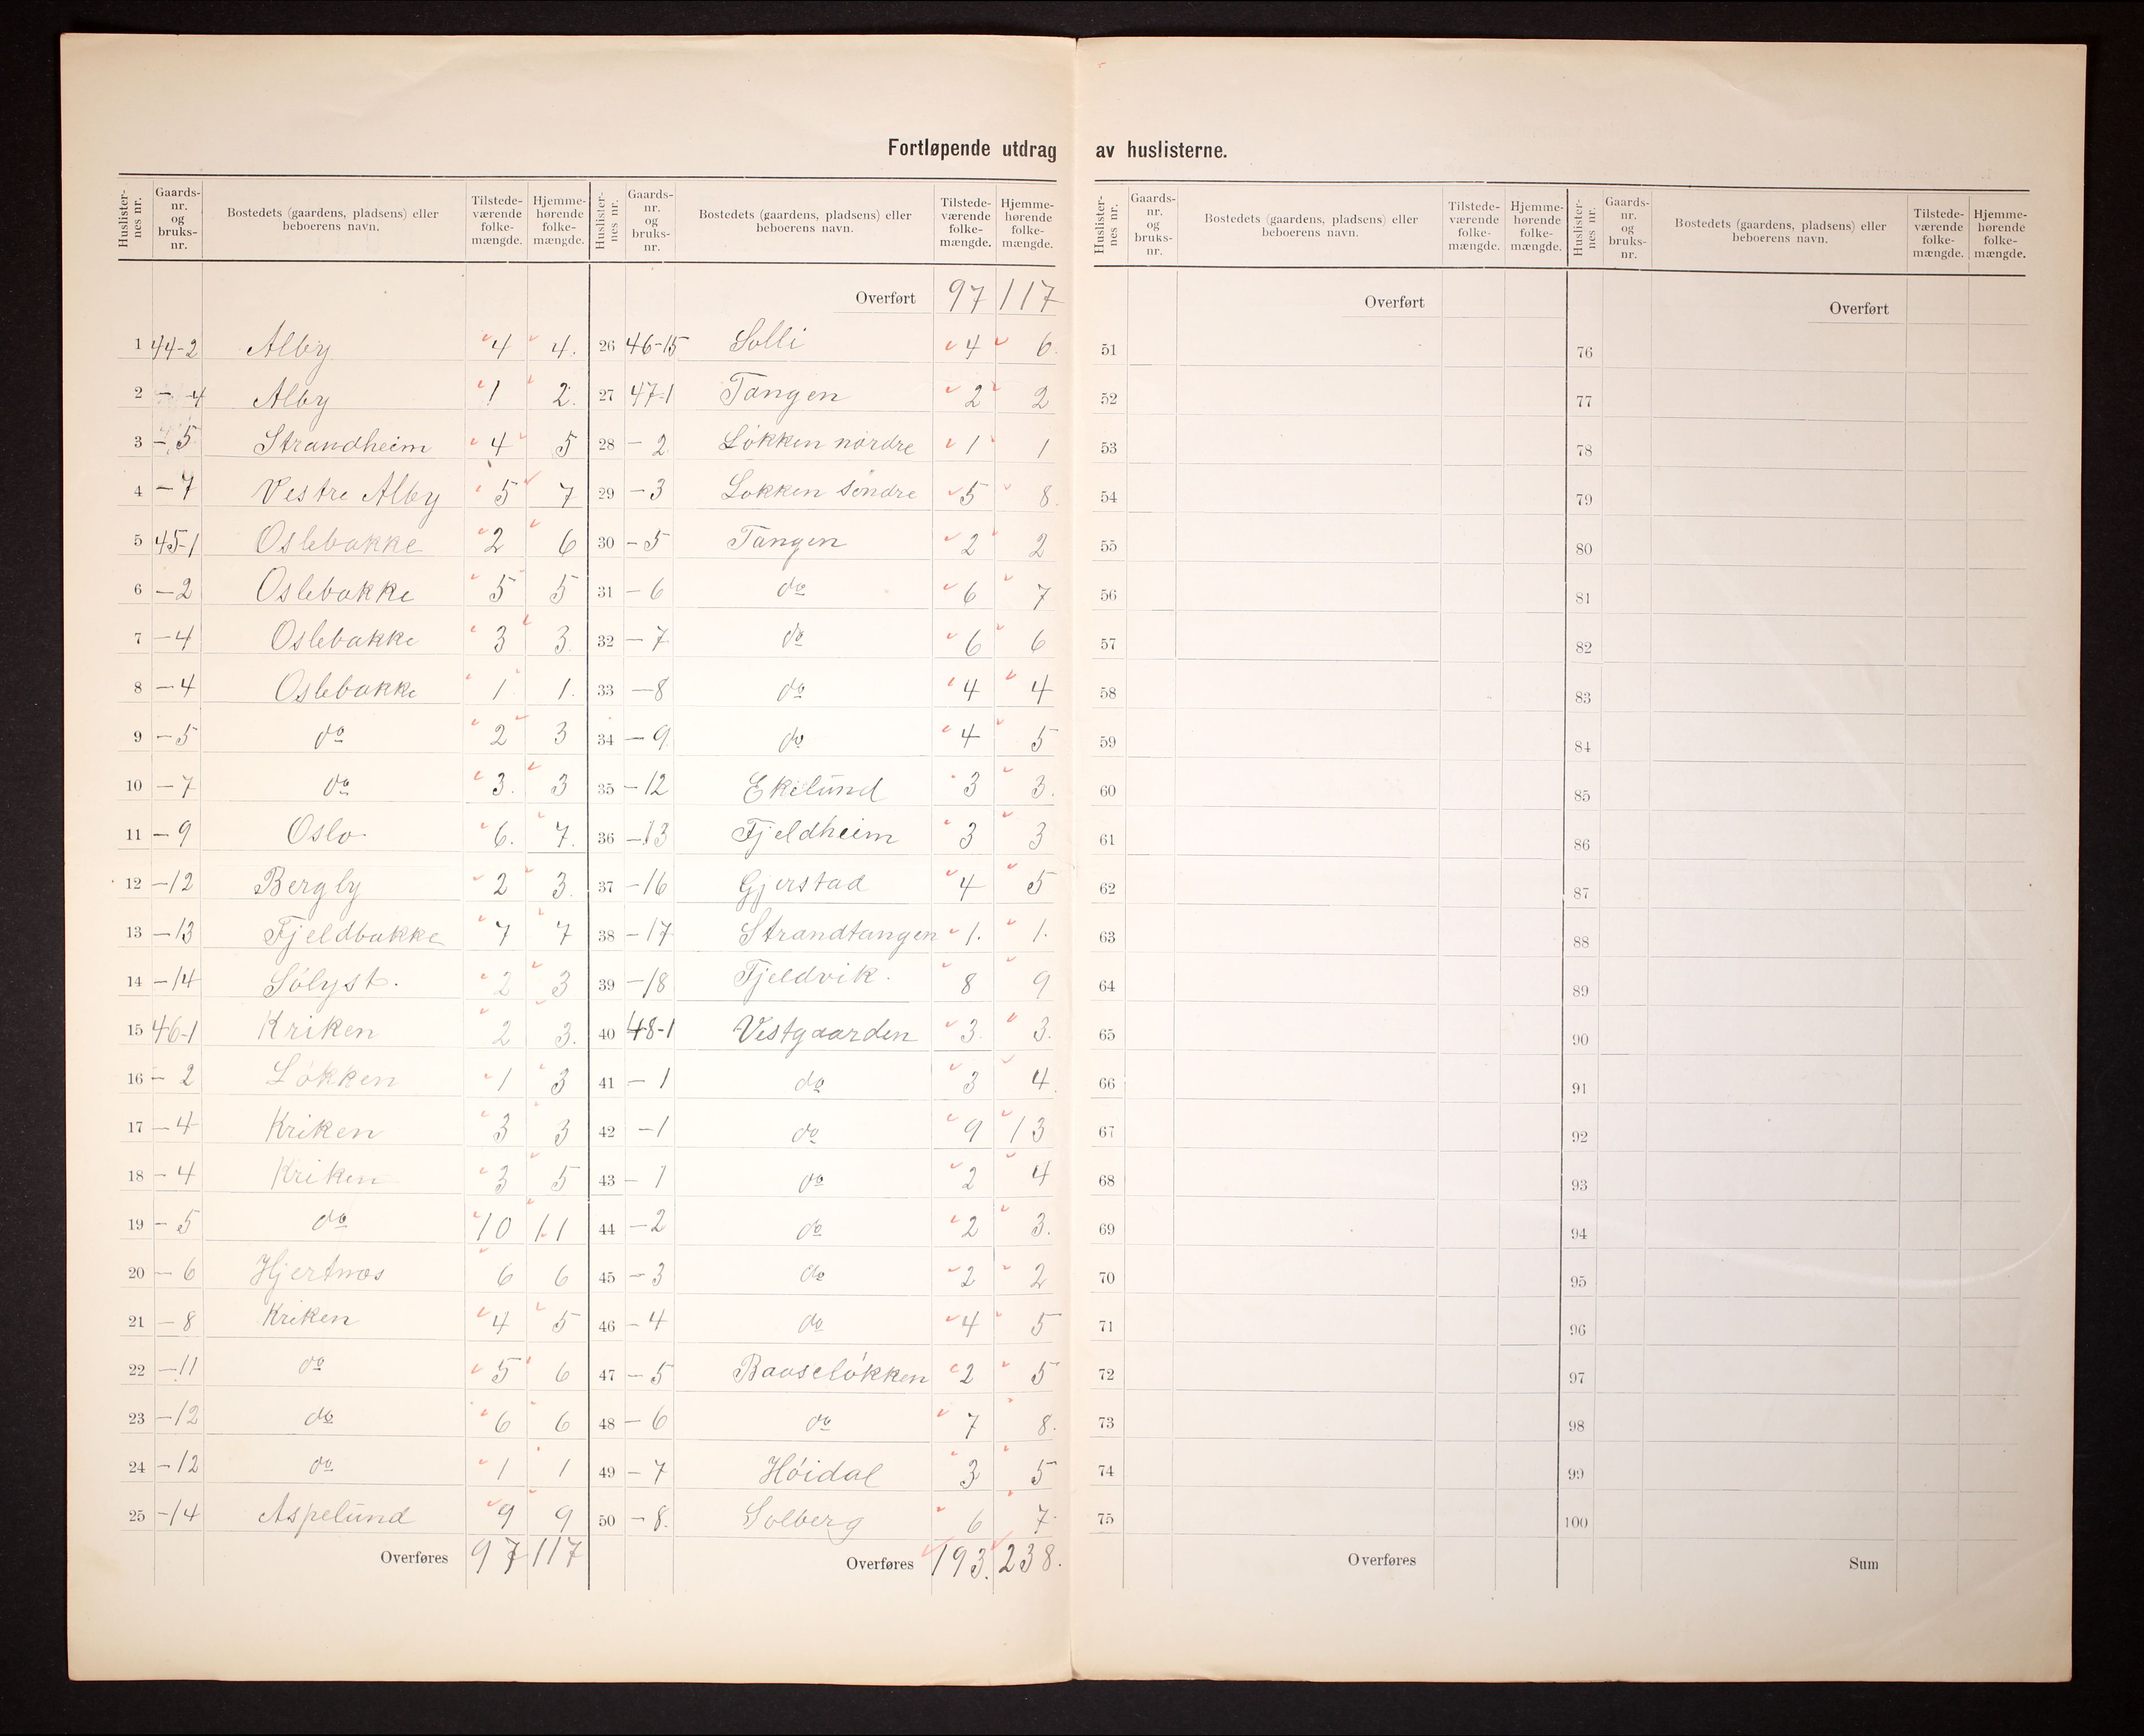 Fortløpende utdrag av huslisterne.
Huslister-nes nr. | Gaards-nr. og bruks-nr. | Bostedets (gaardens, pladsens) eller beboerens navn. | Tilstede-værende folke-mængde. | Hjemme-hørende folke-mængde.
1 44-2 Alby 4 4.
2 - -4 Alby 1 2.
3 - 5 Strandheim 4 5
4 -7 Vestre Alby 5 7
5 45-1 Oslebakke 2 6
6 -2 Oslebakke 5 5
7 -4 Oslebakke 3 3
8 -4 Oslebakke 1 1.
9 -5 do 2 3
10 -7 do 3. 3
11 -9 Oslo. 6. 7.
12 -12 Bergby 2 3.
13 -13 Fjeldbakke 7 7
14 -14 Sólyst. 2 3
15 46-1 Kriken 2 3.
16 - 2 Lókken 1 3
17 -4 Kriken 3 3
18 - 4 Kriken 3 5
19 - 5 do 10 11
20 - 6 Hjertnæs 6 6
21 - 8 Kriken 4 5
22 -11 do 5 6
23 -12 do 6 6
24 -12 do 1 1
25 -14 Aspelund 9 9
Overføres 97 117
Huslister-nes nr. | Gaards-nr. og bruks-nr. | Bostedets (gaardens, pladsens) eller beboerens navn. | Tilstede-værende folke-mængde. | Hjemme-hørende folke-mængde.
Overført 97 117
26 46-15 Solli 4 6.
27 47-1 Tangen 2 2
28 - 2 Lókken nordre 1 1
29 -3 Lokken sóndre 5 8.
30 -5 Tangen 2 2
31 - 6 do 6 7
32 - 7 do 6 6
33 -8 do 4 4
34 - 9 do 4 5
35 -12 Ekelund 3 3.
36 -13 Fjeldheim 3 3
37 -16 Gjerstad 4 5
38 -17 Strandtangen 1. 1.
39 -18 Fjeldvik. 8 9
40 48-1 Vestgaarden 3. 3.
41 - 1 do 3 4.
42 -1 do 9 13
43 - 1 do 2 4
44 -2 do 2 3.
45 -3 do 2 2
46 -4 do 4 5
47 - 5 Baaselókken 2 5
48 - 6 do 7 8.
49 - 7 Hóidal 3 5
50 - 8. Solberg 6 7.
Overføres 193. 238.
Huslister-nes nr. | Gaards-nr. og bruks-nr. | Bostedets (gaardens, pladsens) eller beboerens navn. | Tilstede-værende folke-mængde. | Hjemme-hørende folke-mængde.
Overført
51
52
53
54
55
56
57
58
59
60
61
62
63
64
65
66
67
68
69
70
71
72
73
74
75
Overføres
Huslister-nes nr. | Gaards-nr. og bruks-nr. | Bostedets (gaardens, pladsens) eller beboerens navn. | Tilstede-værende folke-mængde. | Hjemme-hørende folke-mængde.
Overført
76
77
78
79
80
81
82
83
84
85
86
87
88
89
90
91
92
93
94
95
96
97
98
99
100
Sum